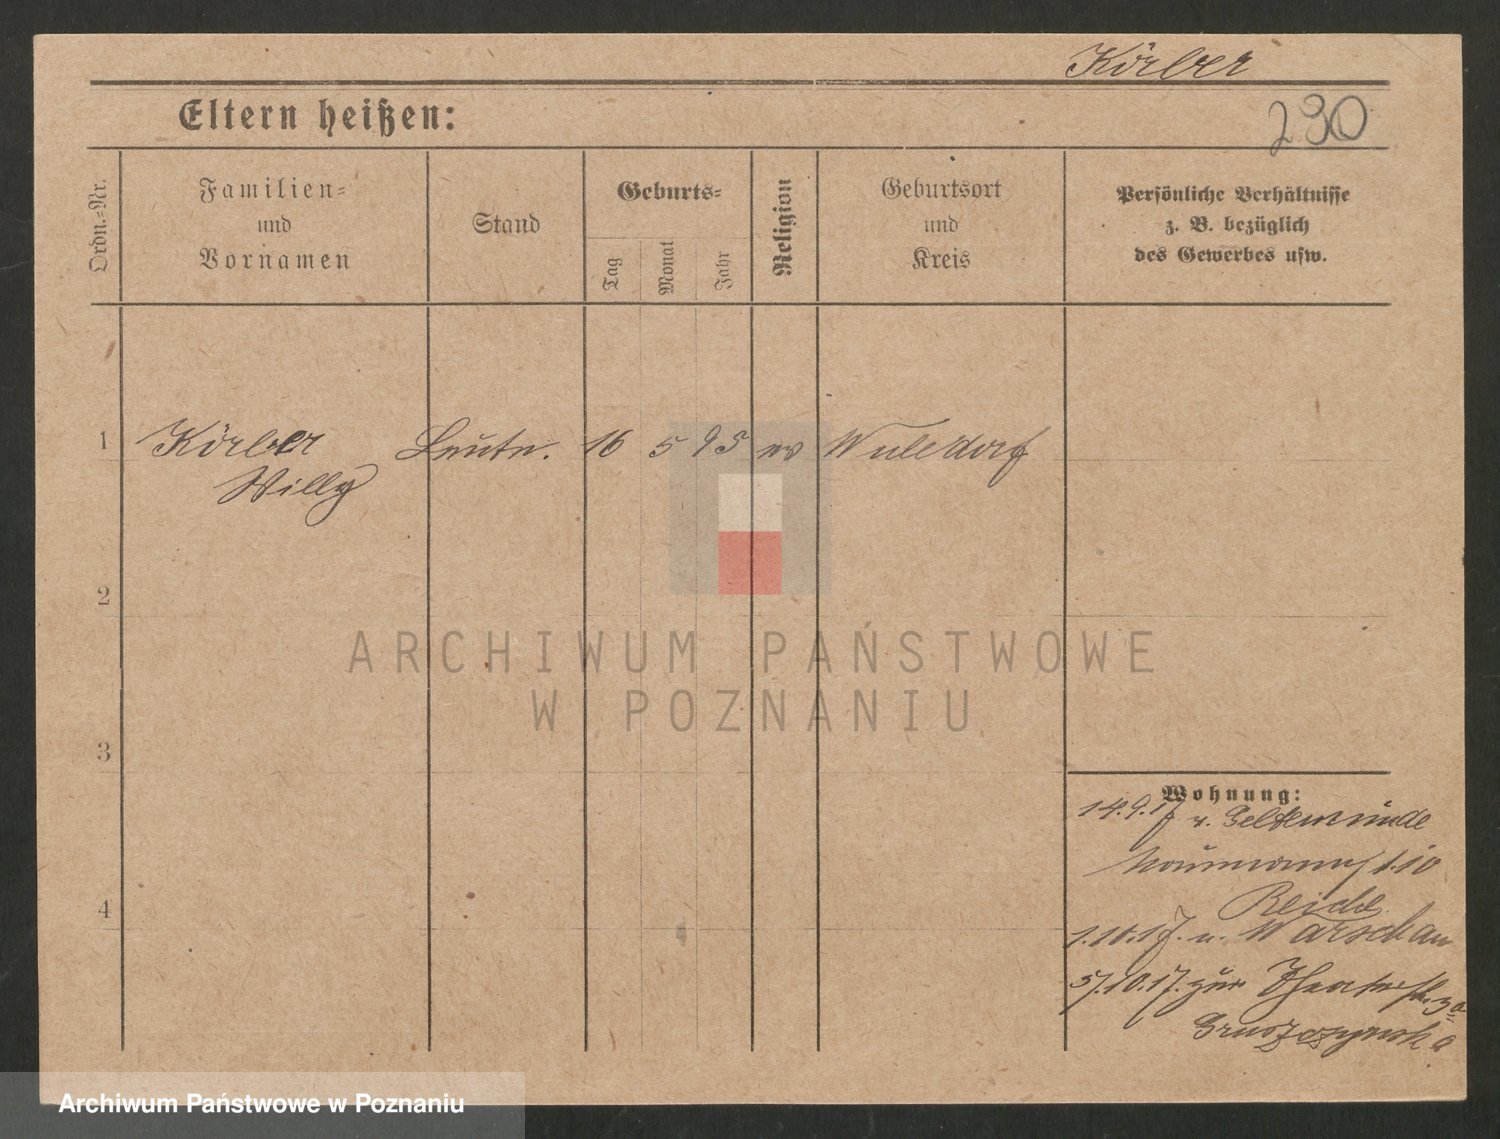 Körber
230
Eltern heißen:
Ordn.-Nr.
Familien-
und
Vornamen
Stand
Geburts-
Tag
Monat
Jahr
Religion
Geburtsort
und
Kreis
Persönliche Verhältnisse
z. B. bezüglich
des Gewerbes usw.
1
Körber Leutn. 16 5 95 ev Wulsdorf
Willy
2
3
4
Wohnung:
14.9.17 v.
Naumannst. 10
Reiche
1.10.17. n. Warschau
5/.10.17. zur Theaterstr. 3a
Gruszczynska
ARCHIWUM PAŃSTWOWE
W POZNANIU
Archiwum Państwowe w Poznaniu